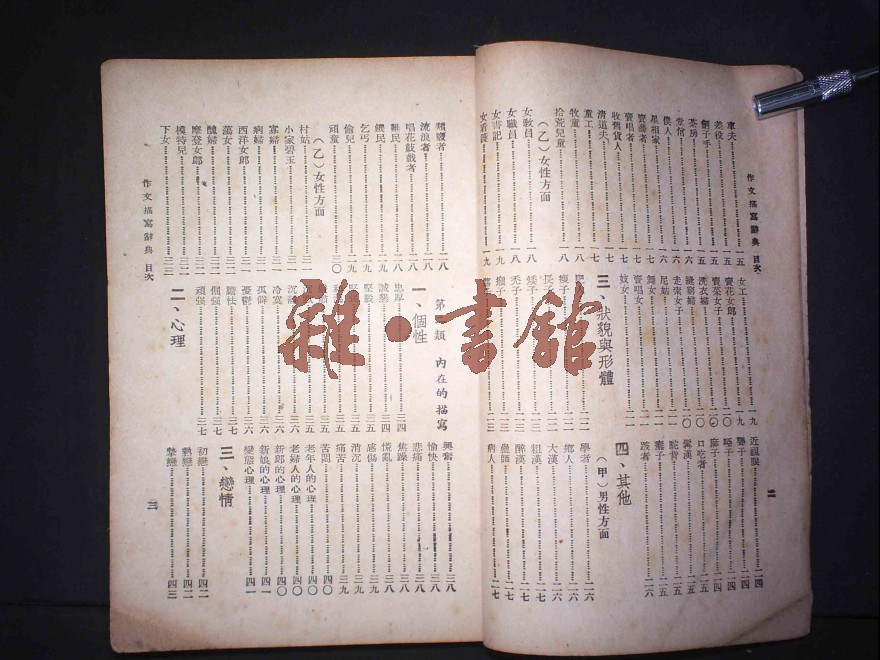 作文描寫辭典 目次
車夫……一五
差役……一五
劊子手……一五
茶房……一五
堂倌……一六
僕人……一六
星相家……一六
賣藝者……一七
賣唱者……一七
收舊貨人……一七
清道夫……一七
童工……一七
牧童……一七
拾荒兒童……一八
（乙）女性方面
女教員……一八
女職員……一八
女書記……一九
女看護……一九
女工……一九
賣花女郎……一九
賣菜女子……二〇
洗衣婦……二〇
縫窮婦……二〇
走索女子……二一
尼姑……二一
舞女……二一
賣唱女……二一
妓女……二二
三、狀貌與形體
瘦子
長子
矮子……二三
禿子……二三
近視眼……二四
聾子……二四
啞子……二四
麻子……二四
口吃者……二五
鬍漢……二五
駝背……二五
跛者……二六
四、其他
（甲）男性方面
學者……二六
鄉人……二六
大漢……二七
粗漢……二七
醉漢……二七
病人……二七
二
類廢者……二八
流浪者……二八
唱花鼓戲者……二八
難民……二八
饑民……二九
乞丐……二九
偷兒……二九
頑童……三〇
（乙）女性方面
村姑
小家碧玉
寡婦
病婦
西洋女郎
蕩女
醜婦
摩登女郎
模特兒……三三
下女……三三
第 類 內在的描寫
一、個性
忠厚……三四
誠懇……三四
堅毅……三五
沉
冷寞……三六
孤僻……三六
憂鬱……三六
膽怯……三七
倔强……三七
頑强……三七
二、心理
興奮……三八
愉快……三八
悲痛……三八
焦躁……三八
慌亂……三八
感傷……三九
消沉……三九
痛苦……三九
苦悶……四〇
老年人的心理……四〇
老婦人的心理……四〇
新郎的心理……四〇
新娘的心理……四一
變態心理……四一
三、戀情
初戀……四二
熱戀……四二
摯戀……四三
作文描寫辭典 目次
三
雜·書館